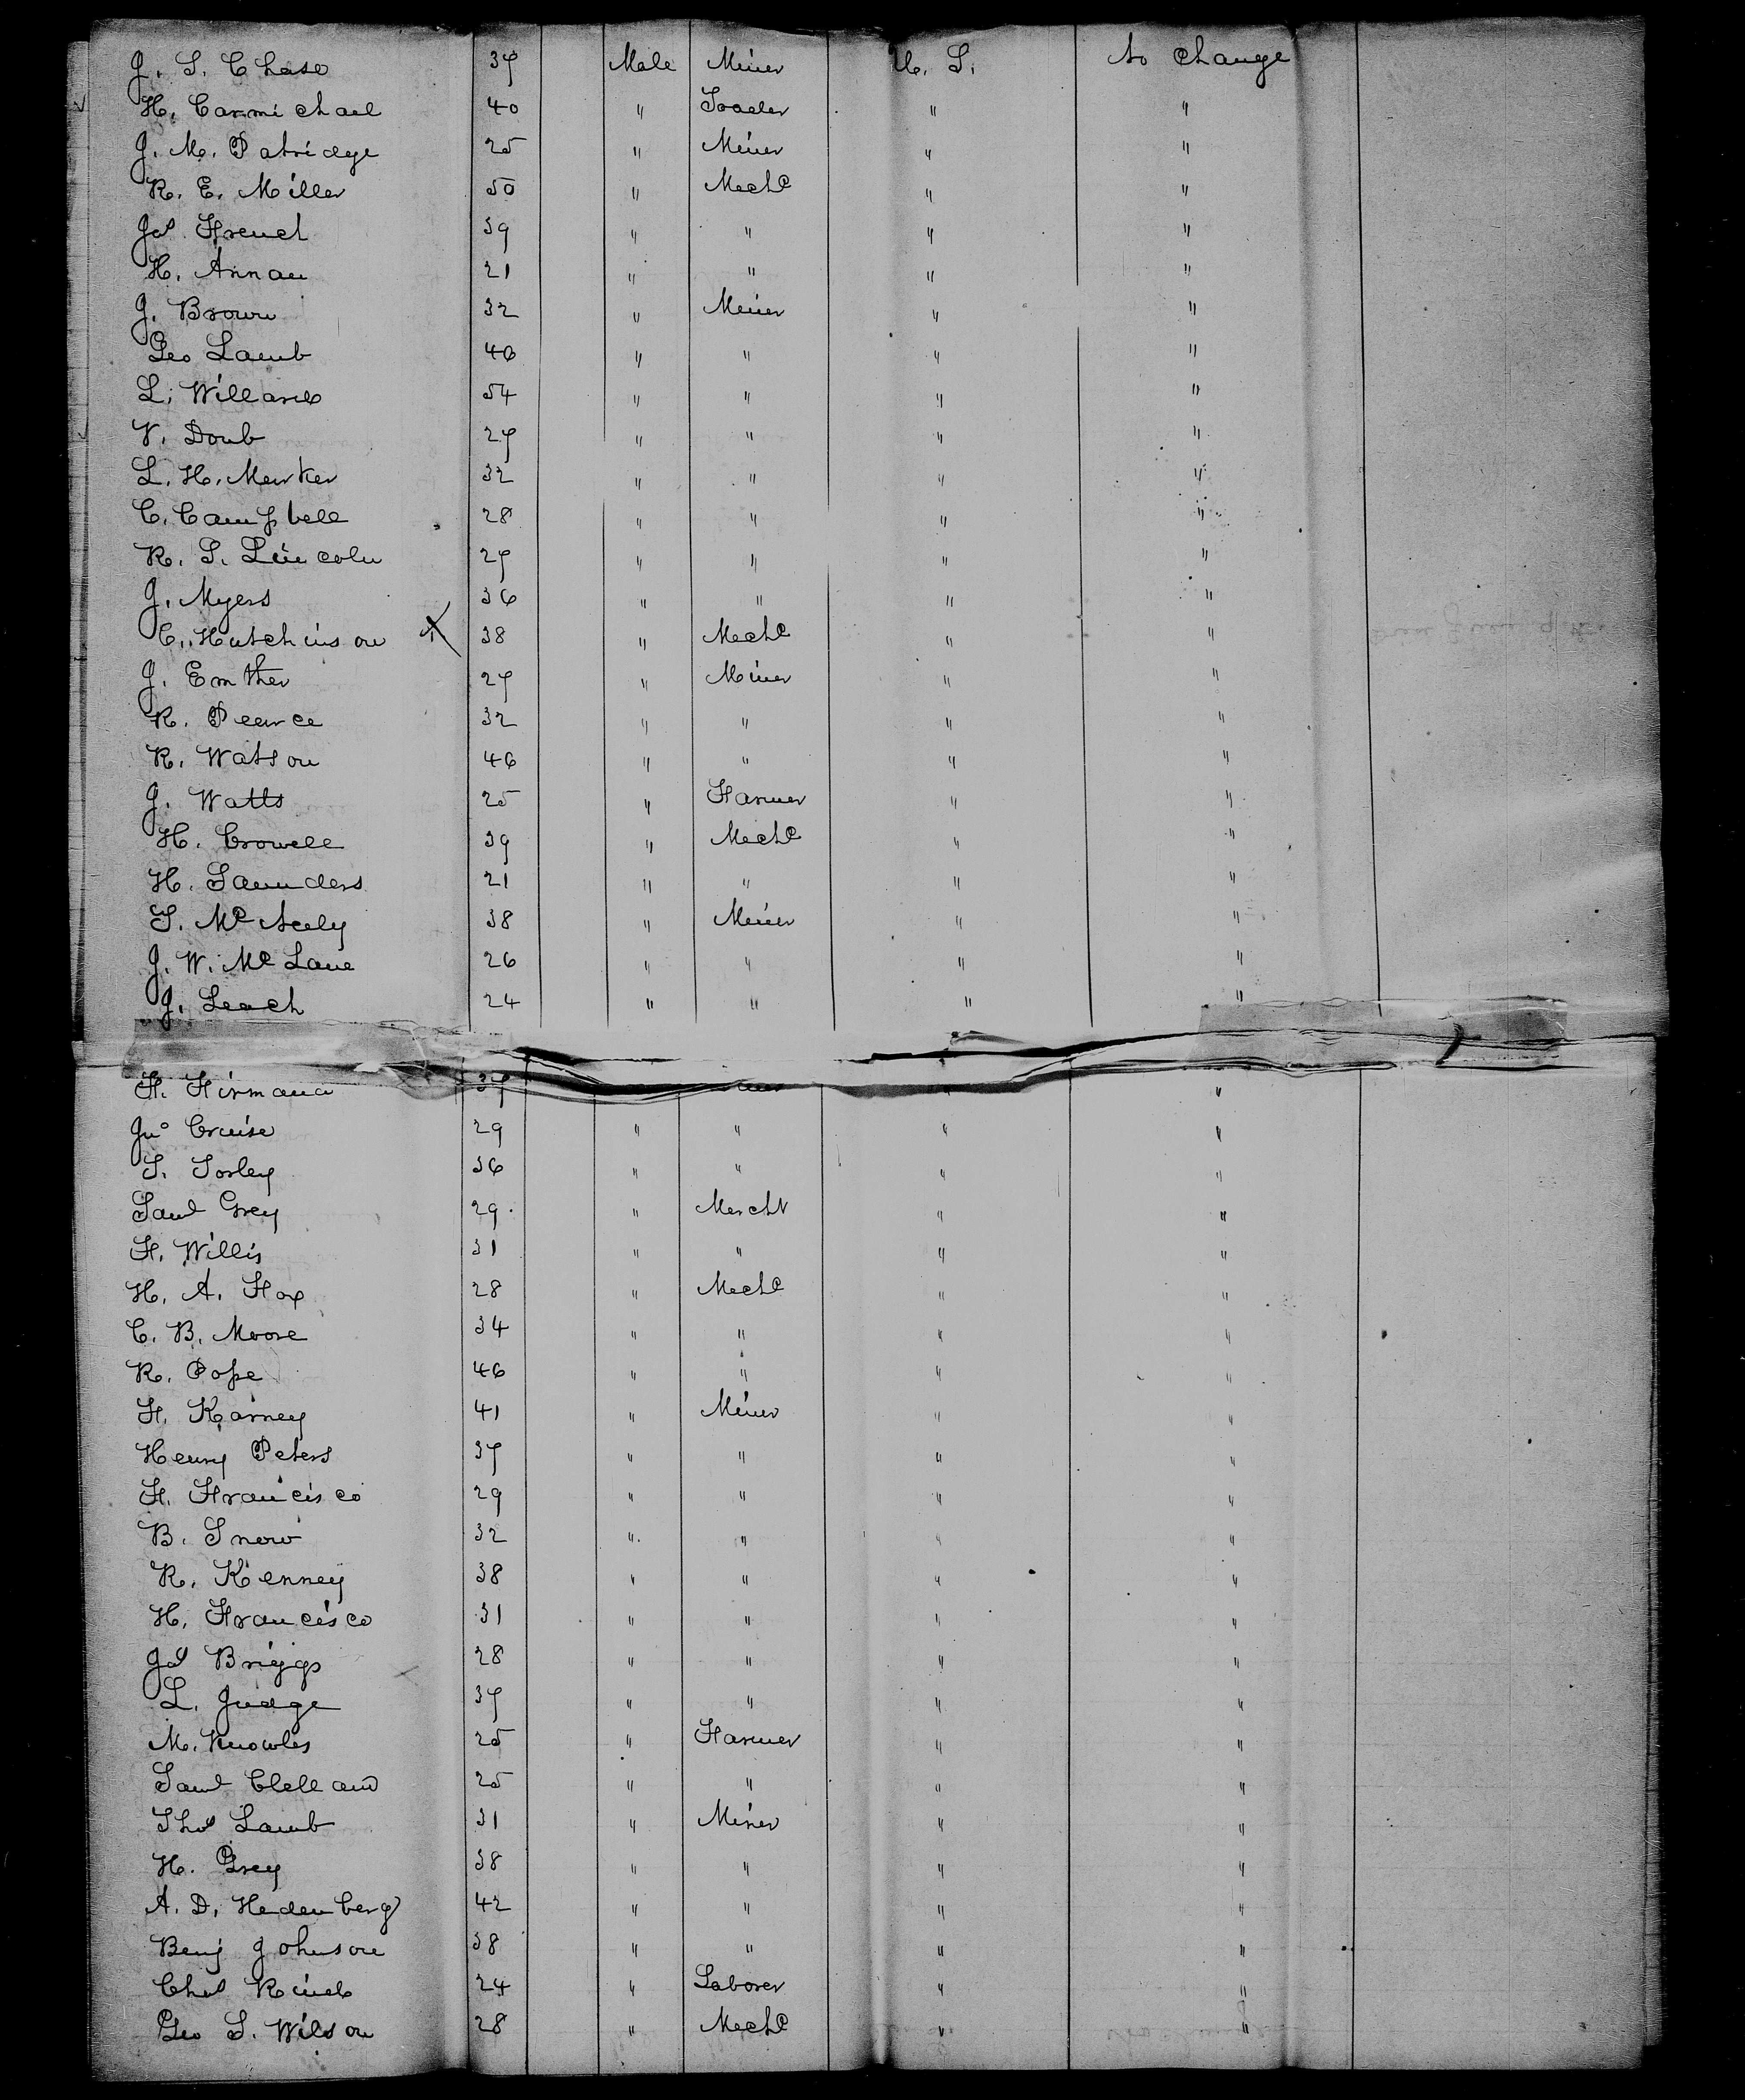 J. S. Chase 37 Male Miner U. S. No Change
H. Carmichael 40 " Trader " "
J. M. Patridge 25 " Miner " "
R. E. Miller 50 " Mechc " "
Jas French 39 " " " "
H. Annan 21 " " " "
J. Brown 32 " Miner " "
Geo Lamb 46 " " " "
L. Willard 54 " " " "
V. Doub 27 " " " "
L. H. Merker 32 " " " "
C. Campbell 28 " " " "
R. S. Lincoln 27 " " " "
J. Myers 36 " " " "
C. Hutchinson X 38 " Mechc " "
J. Emther 27 " Miner " "
R. Pearce 32 " " " "
R. Watson 46 " " " "
J. Watts 25 " Farmer " "
H. Crowell 39 " Mechc " "
H. Saunders 21 " " " "
T. Mc Neely 38 " Miner " "
J. W. Mc Lane 26 " " " "
J. Leach 24 " " " "
F. Firmana 37 "
Jno Cruise 29 " " " "
S. Sorley 36 " " " "
Saml Grey 29 " Mercht " "
F. Willis 31 " " " "
H. A. Fox 28 " Mechc " "
C. B. Moore 34 " " " "
R. Pope 46 " " " "
F. Karney 41 " Miner " "
Henry Peters 37 " " " "
F. Francisco 29 " " " "
B. Snow 32 " " " "
R. Kenney 38 " " " "
H. Francisco 31 " " " "
Jas Briggs 28 " " " "
L. Judge 37 " " " "
M. Knowles 25 " Farmer " "
Saml Clelland 25 " " " "
Thos Lamb 31 " Miner " "
H. Grey 38 " " " "
A. D. Hedenberg 42 " " " "
Benj Johnson 38 " " " "
Chas Rineb 24 " Laborer " "
Geo S. Wilson 28 " Mechc " "